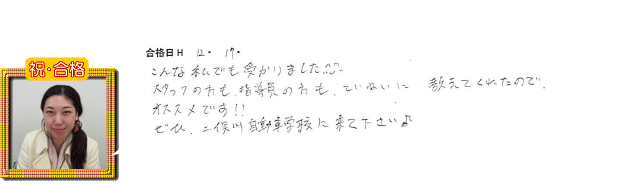 祝・合格
合格日 H 12・ 17・
こんな私でも受かりました!!
スタッフの方も、指導員の方も、ていねいに 教えてくれたので、
オススメです!!
ぜひ、二俣川自動車学校に来て下さい♪